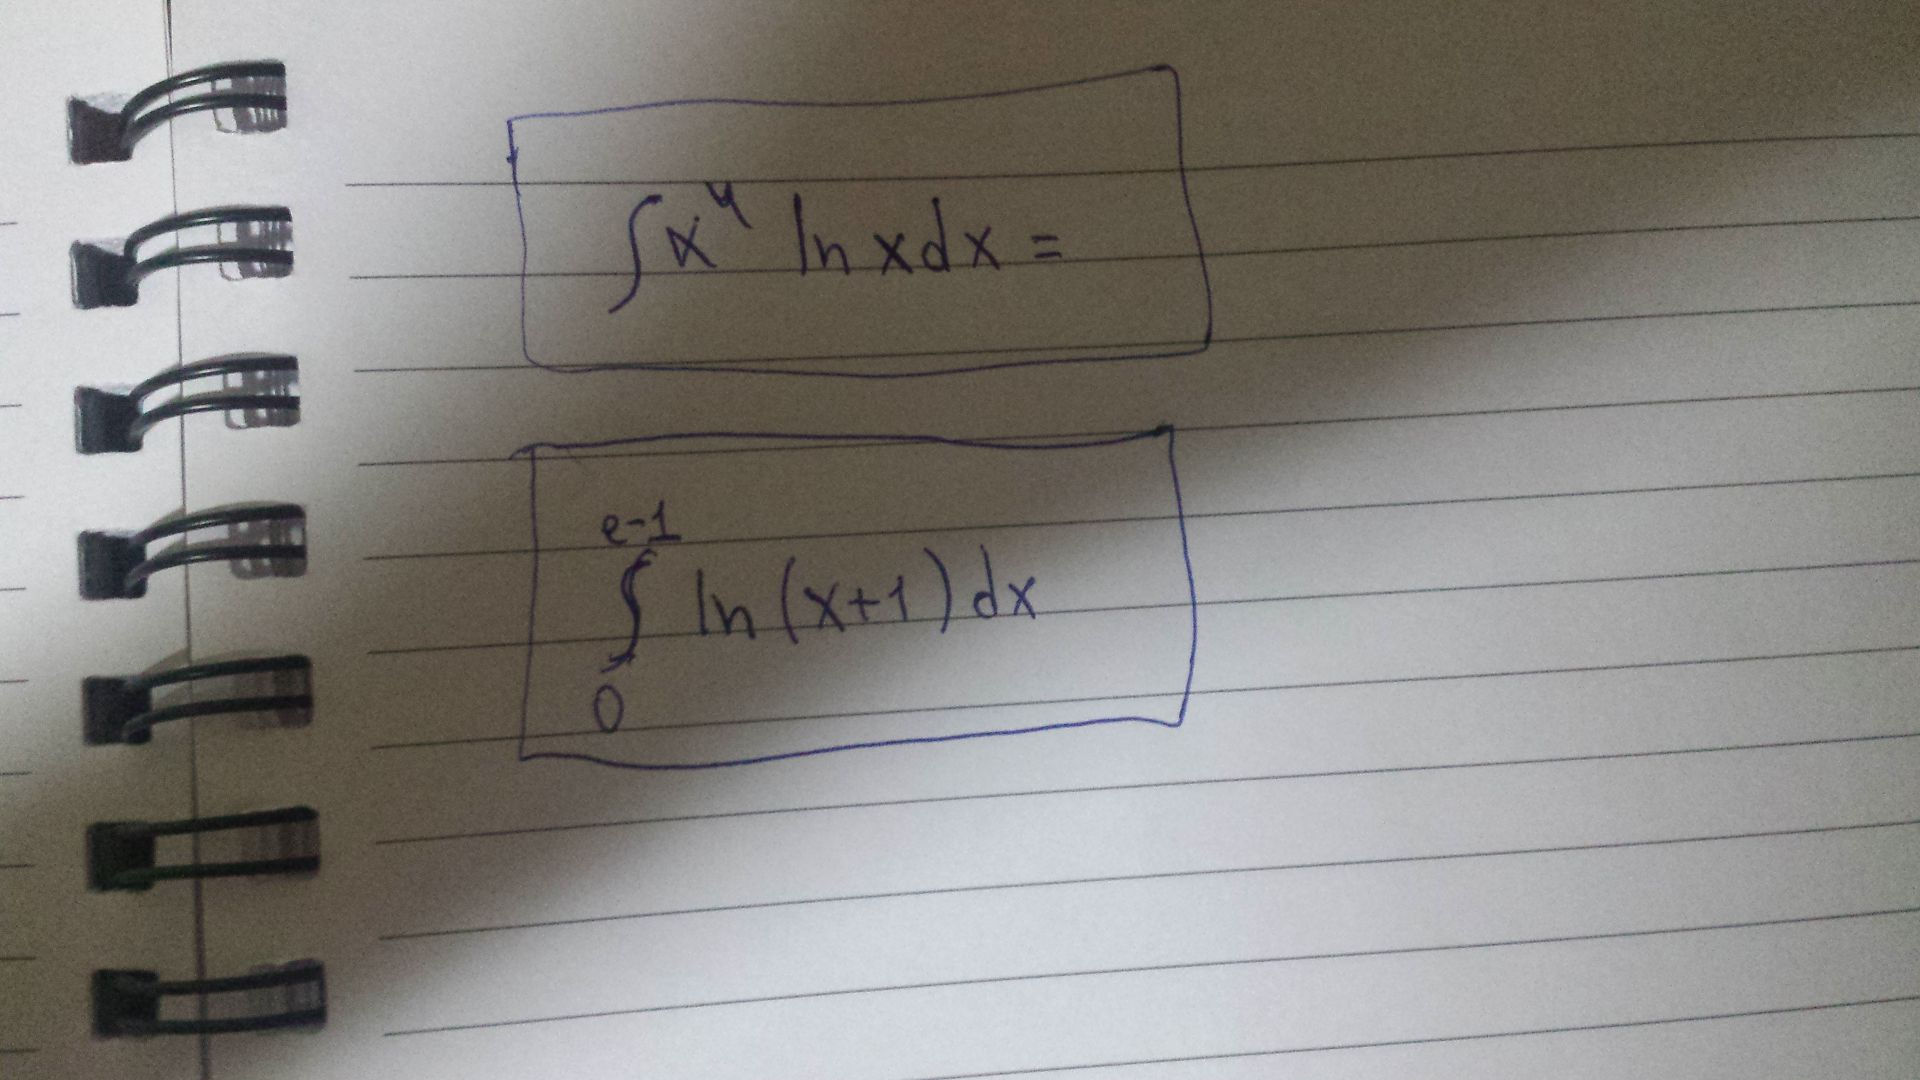 ∫x⁴ ln x dx =
e-1
∫ ln (x+1) dx
0